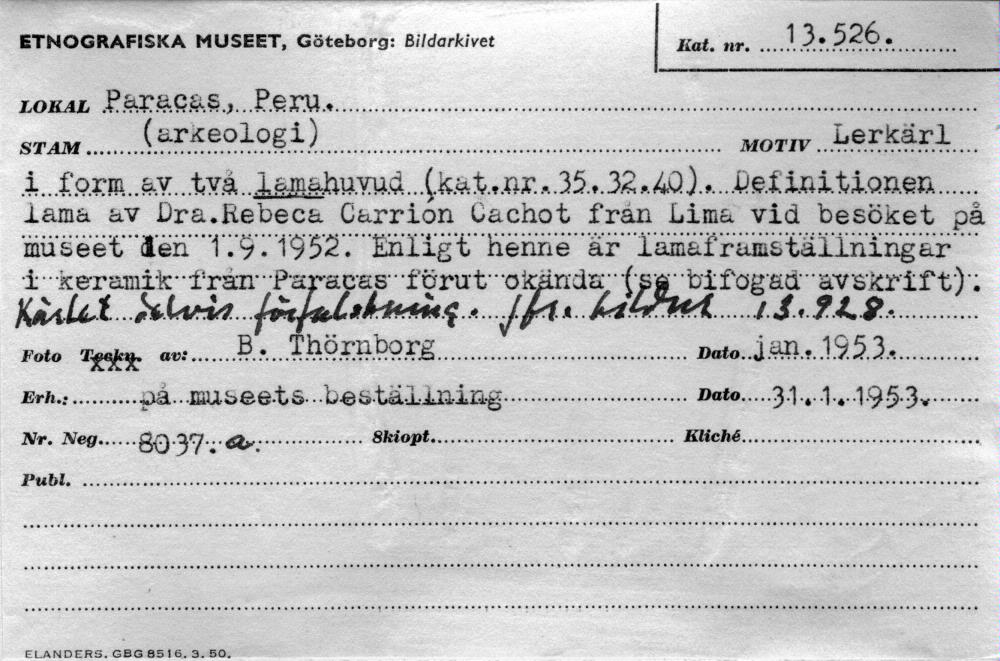 ETNOGRAFISKA MUSEET, Göteborg: Bildarkivet
Kat. nr. 13.526.
LOKAL Paracas, Peru.
STAM (arkeologi) MOTIV Lerkärl
i form av två lamahuvud (kat.nr. 35.32.40). Definitionen
lama av Dra.Rebeca Carrión Cachot från Lima vid besöket på
museet den 1.9.1952. Enligt henne är lamaframställningar
i keramik från Paracas förut okända (se bifogad avskrift).
Kärlet delvis förfalskning. Jfr. bildnr 13.928.
Foto Teckn. av: B. Thörnborg Dato jan. 1953.
Erh.: på museets beställning Dato 31.1.1953.
Nr. Neg. 8037.a. Skiopt. Kliché
Publ.
ELANDERS. GBG 8516. 3. 50.